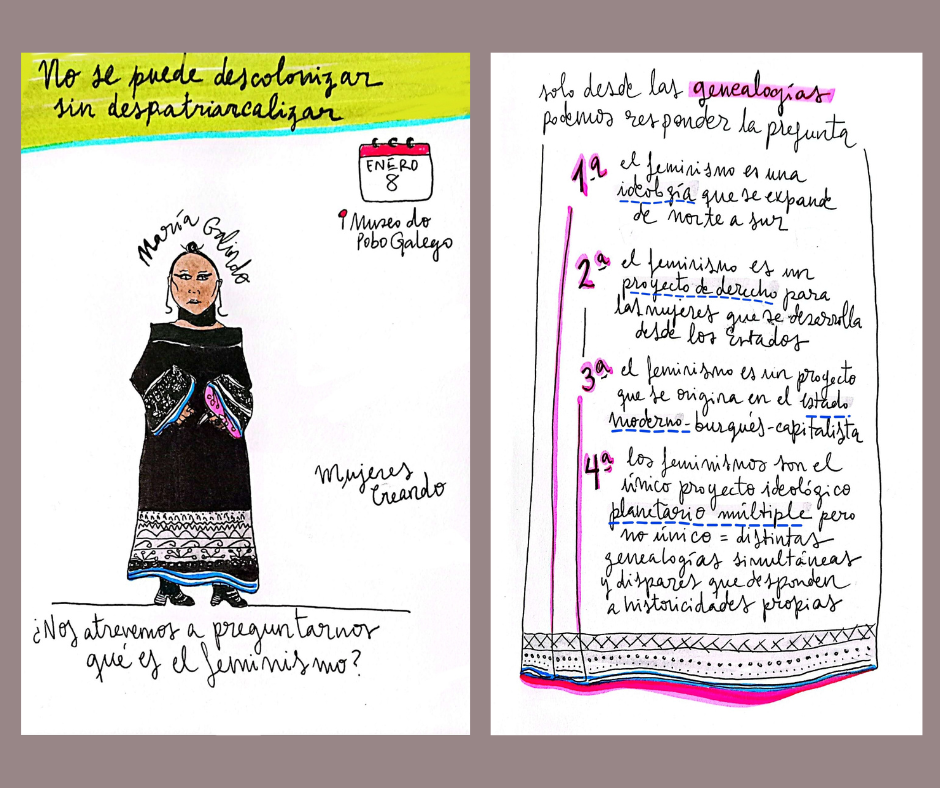 No se puede descolonizar
sin despatriarcalizar
ENERO
8
Museo do
Pobo Galego
María Galindo
Mujeres
Creando
¿Nos atrevemos a preguntarnos
qué es el feminismo?
solo desde las genealogías
podemos responder la pregunta
1ª el feminismo es una
ideología que se expande
de norte a sur
2ª el feminismo es un
proyecto de derecho para
las mujeres que se desarrolla
desde los Estados
3ª el feminismo es un proyecto
que se origina en el estado
moderno-burgués-capitalista
4ª los feminismos son el
único proyecto ideológico
planetario múltiple pero
no único = distintas
genealogías simultáneas
y dispares que desponden
a historicidades propias